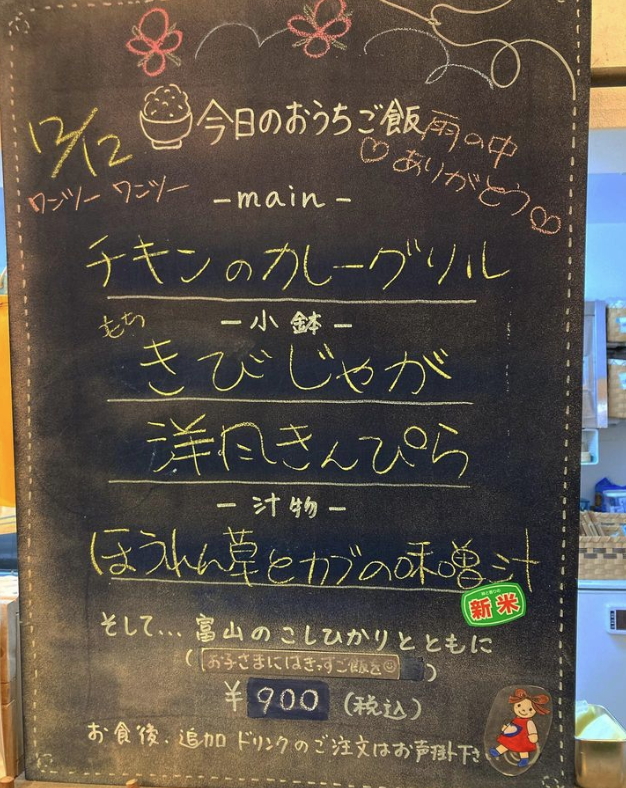 12/12
ワンツー ワンツー
今日のおうちご飯
雨の中
ありがとう
-main-
チキンのカレーグリル
-小鉢-
もち
きびじゃが
洋風きんぴら
-汁物-
ほうれん草とカブの味噌汁
新米
そして... 富山のこしひかりとともに
(お子さまにはきっずご飯を)
¥900 (税込)
お食後、追加ドリンクのご注文はお声掛け下さ